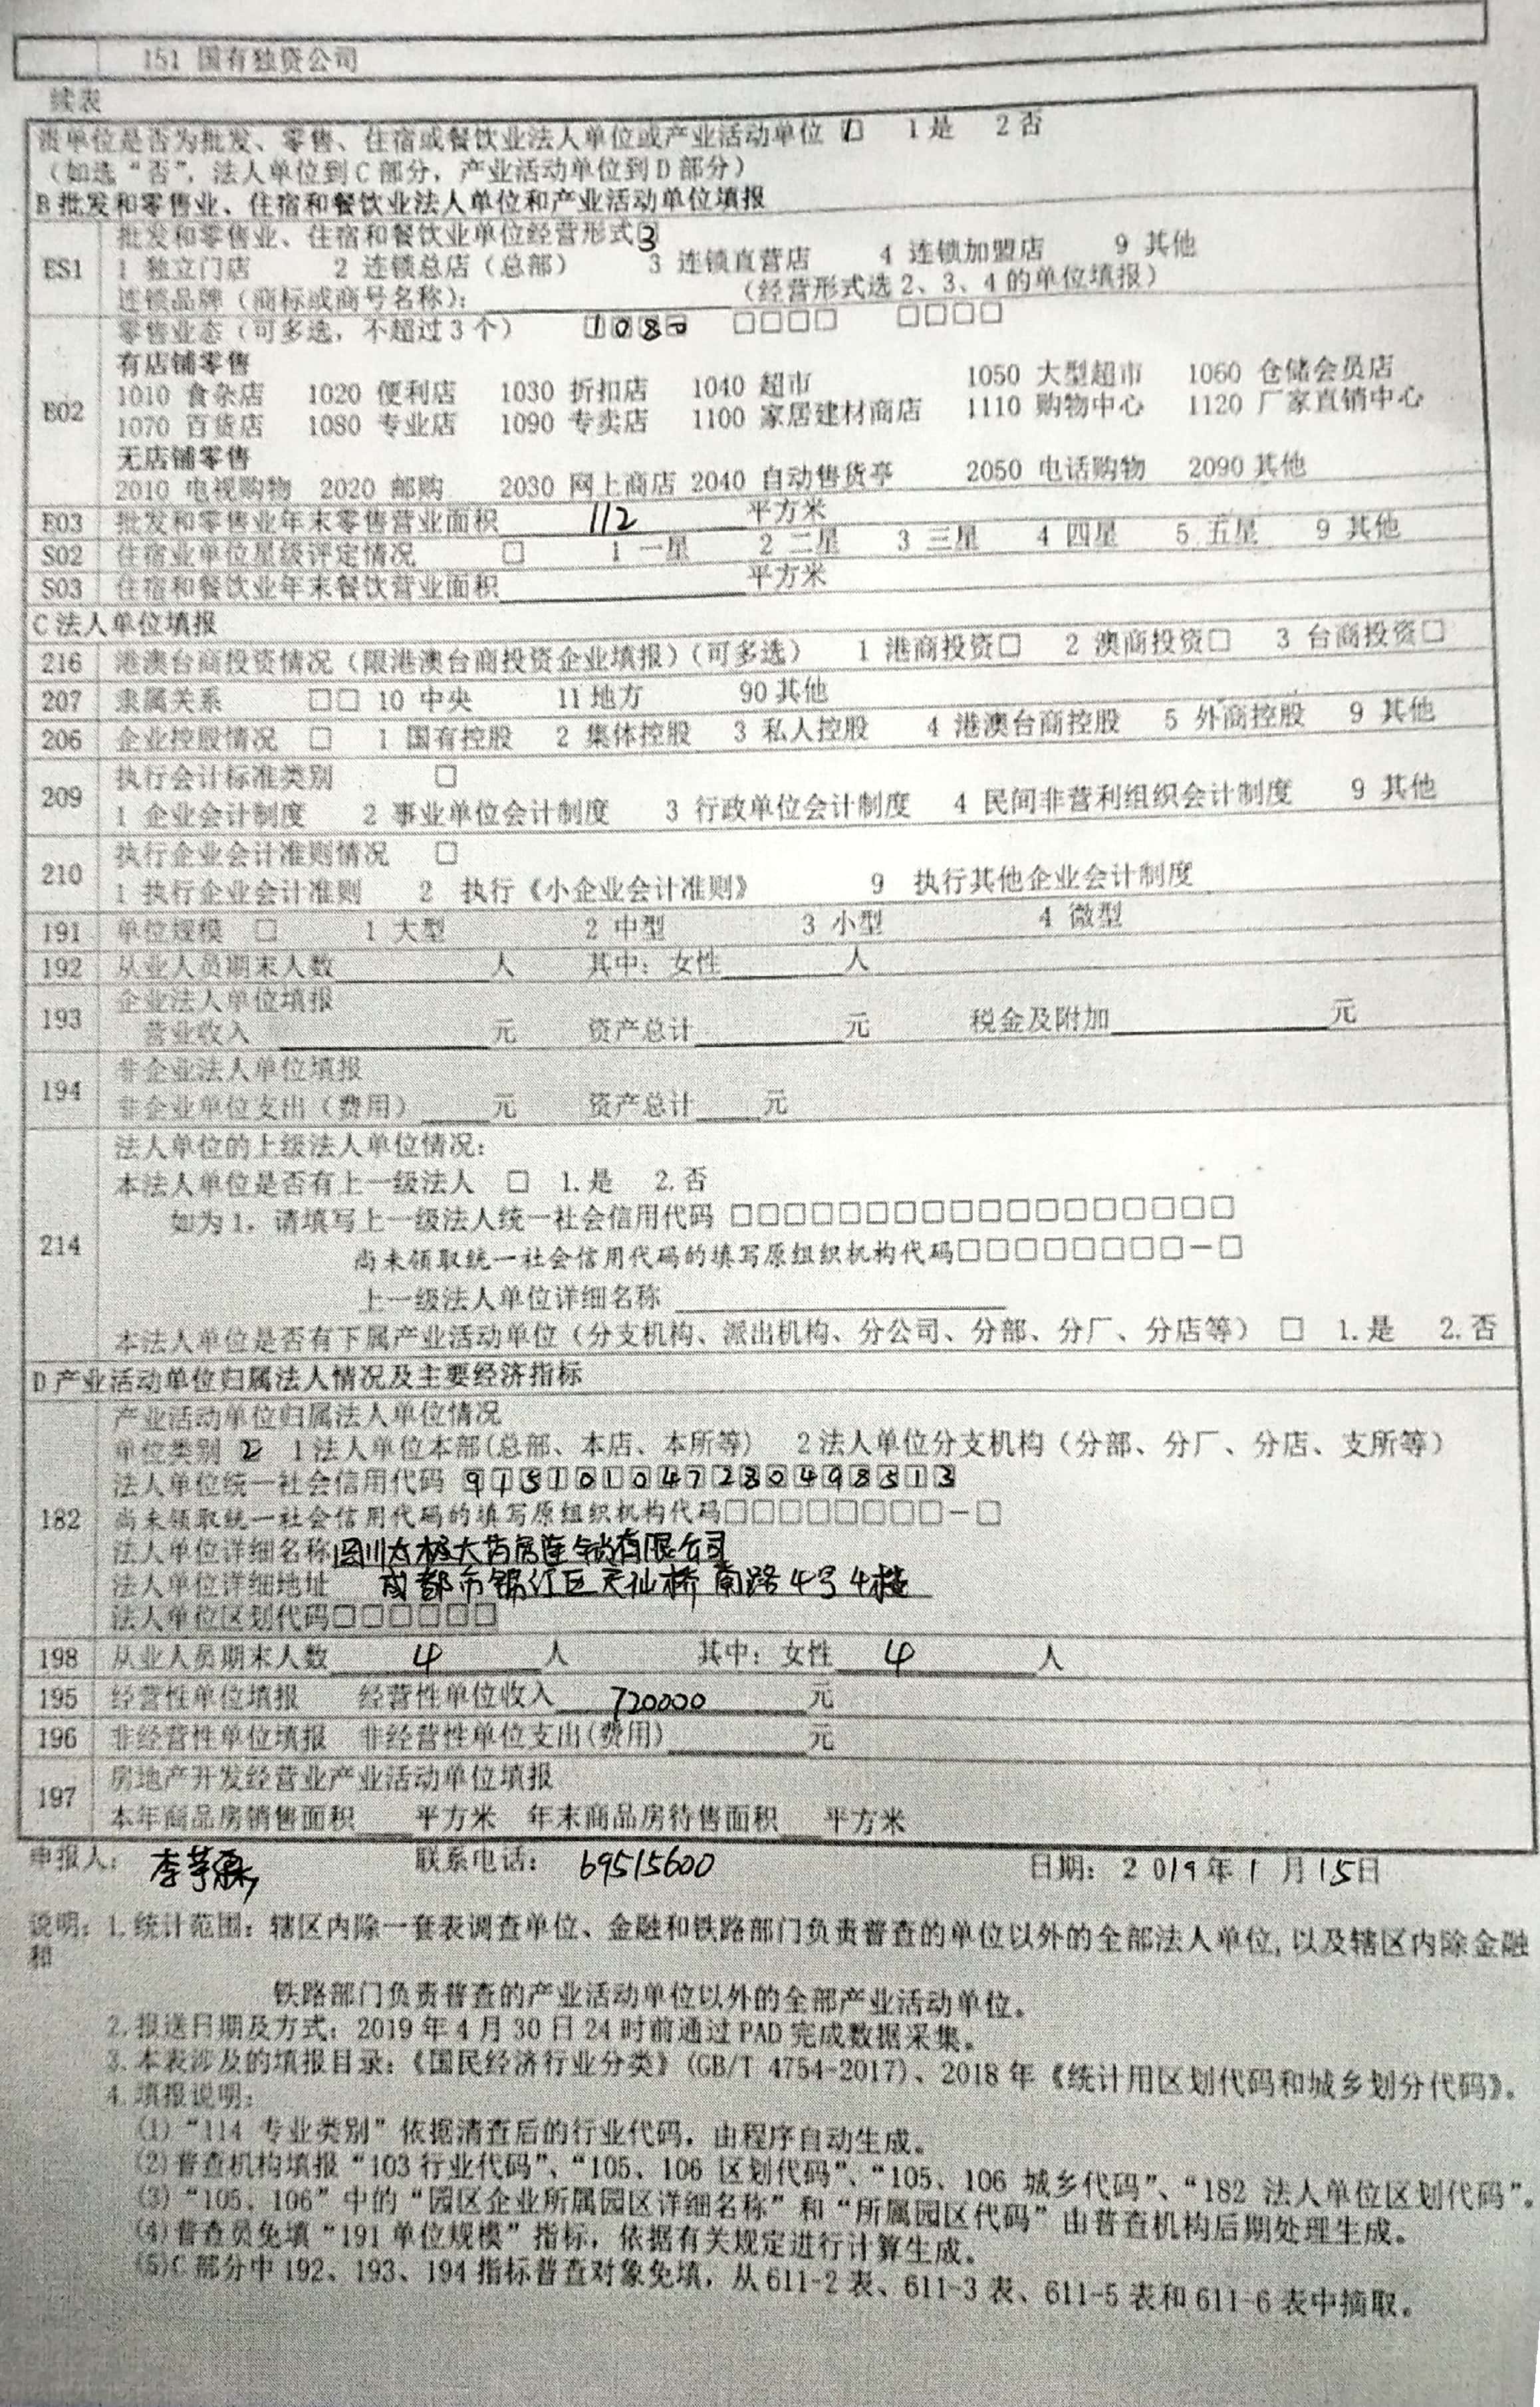 151 国有独资公司
续表
贵单位是否为批发、零售、住宿或餐饮业法人单位或产业活动单位 1□ 1 是 2 否
（如选“否”，法人单位到 C 部分，产业活动单位到 D 部分）
B 批发和零售业、住宿和餐饮业法人单位和产业活动单位填报
ES1
批发和零售业、住宿和餐饮业单位经营形式 3
1 独立门店 2 连锁总店（总部） 3 连锁直营店 4 连锁加盟店 9 其他
连锁品牌（商标或商号名称）：（经营形式选 2、3、4 的单位填报）
E02
零售业态（可多选，不超过 3 个） 1080 □□□□ □□□□
有店铺零售
1010 食杂店 1020 便利店 1030 折扣店 1040 超市 1050 大型超市 1060 仓储会员店
1070 百货店 1080 专业店 1090 专卖店 1100 家居建材商店 1110 购物中心 1120 厂家直销中心
无店铺零售
2010 电视购物 2020 邮购 2030 网上商店 2040 自动售货亭 2050 电话购物 2090 其他
E03 批发和零售业年末零售营业面积 112 平方米
S02 住宿业单位星级评定情况 □ 1 一星 2 二星 3 三星 4 四星 5 五星 9 其他
S03 住宿和餐饮业年末餐饮营业面积 平方米
C 法人单位填报
216 港澳台商投资情况（限港澳台商投资企业填报）（可多选） 1 港商投资□ 2 澳商投资□ 3 台商投资□
207 隶属关系 □□ 10 中央 11 地方 90 其他
206 企业控股情况 □ 1 国有控股 2 集体控股 3 私人控股 4 港澳台商控股 5 外商控股 9 其他
209
执行会计标准类别 □
1 企业会计制度 2 事业单位会计制度 3 行政单位会计制度 4 民间非营利组织会计制度 9 其他
210
执行企业会计准则情况 □
1 执行企业会计准则 2 执行《小企业会计准则》 9 执行其他企业会计制度
191 单位规模 □ 1 大型 2 中型 3 小型 4 微型
192 从业人员期末人数 人 其中：女性 人
193
企业法人单位填报
营业收入 元 资产总计 元 税金及附加 元
194
非企业法人单位填报
非企业单位支出（费用） 元 资产总计 元
214
法人单位的上级法人单位情况：
本法人单位是否有上一级法人 □ 1.是 2.否
如为 1，请填写上一级法人统一社会信用代码 □□□□□□□□□□□□□□□□□□
尚未领取统一社会信用代码的填写原组织机构代码□□□□□□□□－□
上一级法人单位详细名称
本法人单位是否有下属产业活动单位（分支机构、派出机构、分公司、分部、分厂、分店等） □ 1.是 2.否
D 产业活动单位归属法人情况及主要经济指标
182
产业活动单位归属法人单位情况
单位类别 2 1 法人单位本部(总部、本店、本所等) 2 法人单位分支机构（分部、分厂、分店、支所等）
法人单位统一社会信用代码 915101047280498513
尚未领取统一社会信用代码的填写原组织机构代码□□□□□□□□－□
法人单位详细名称 四川太极大药房连锁有限公司
法人单位详细地址 成都市锦江区天仙桥南路4号4楼
法人单位区划代码□□□□□□
198 从业人员期末人数 4 人 其中：女性 4 人
195 经营性单位填报 经营性单位收入 720000 元
196 非经营性单位填报 非经营性单位支出(费用) 元
197
房地产开发经营业产业活动单位填报
本年商品房销售面积 平方米 年末商品房待售面积 平方米
申报人： 李 联系电话： 69515600 日期：2019 年 1 月 15 日
说明：1.统计范围：辖区内除一套表调查单位、金融和铁路部门负责普查的单位以外的全部法人单位，以及辖区内除金融
和
铁路部门负责普查的产业活动单位以外的全部产业活动单位。
2.报送日期及方式：2019 年 4 月 30 日 24 时前通过 PAD 完成数据采集。
3.本表涉及的填报目录：《国民经济行业分类》(GB/T 4754-2017)、2018 年《统计用区划代码和城乡划分代码》。
4.填报说明：
(1)“114 专业类别”依据清查后的行业代码，由程序自动生成。
(2)普查机构填报“103 行业代码”、“105、106 区划代码”、“105、106 城乡代码”、“182 法人单位区划代码”。
(3)“105、106”中的“园区企业所属园区详细名称”和“所属园区代码”由普查机构后期处理生成。
(4)普查员免填“191 单位规模”指标，依据有关规定进行计算生成。
(5)C 部分中 192、193、194 指标普查对象免填，从 611-2 表、611-3 表、611-5 表和 611-6 表中摘取。